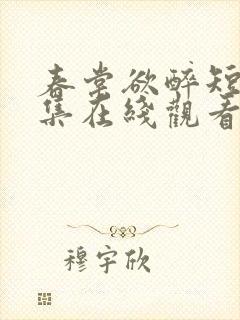 春堂欲醉短
集在綫觀看
穆宇欣